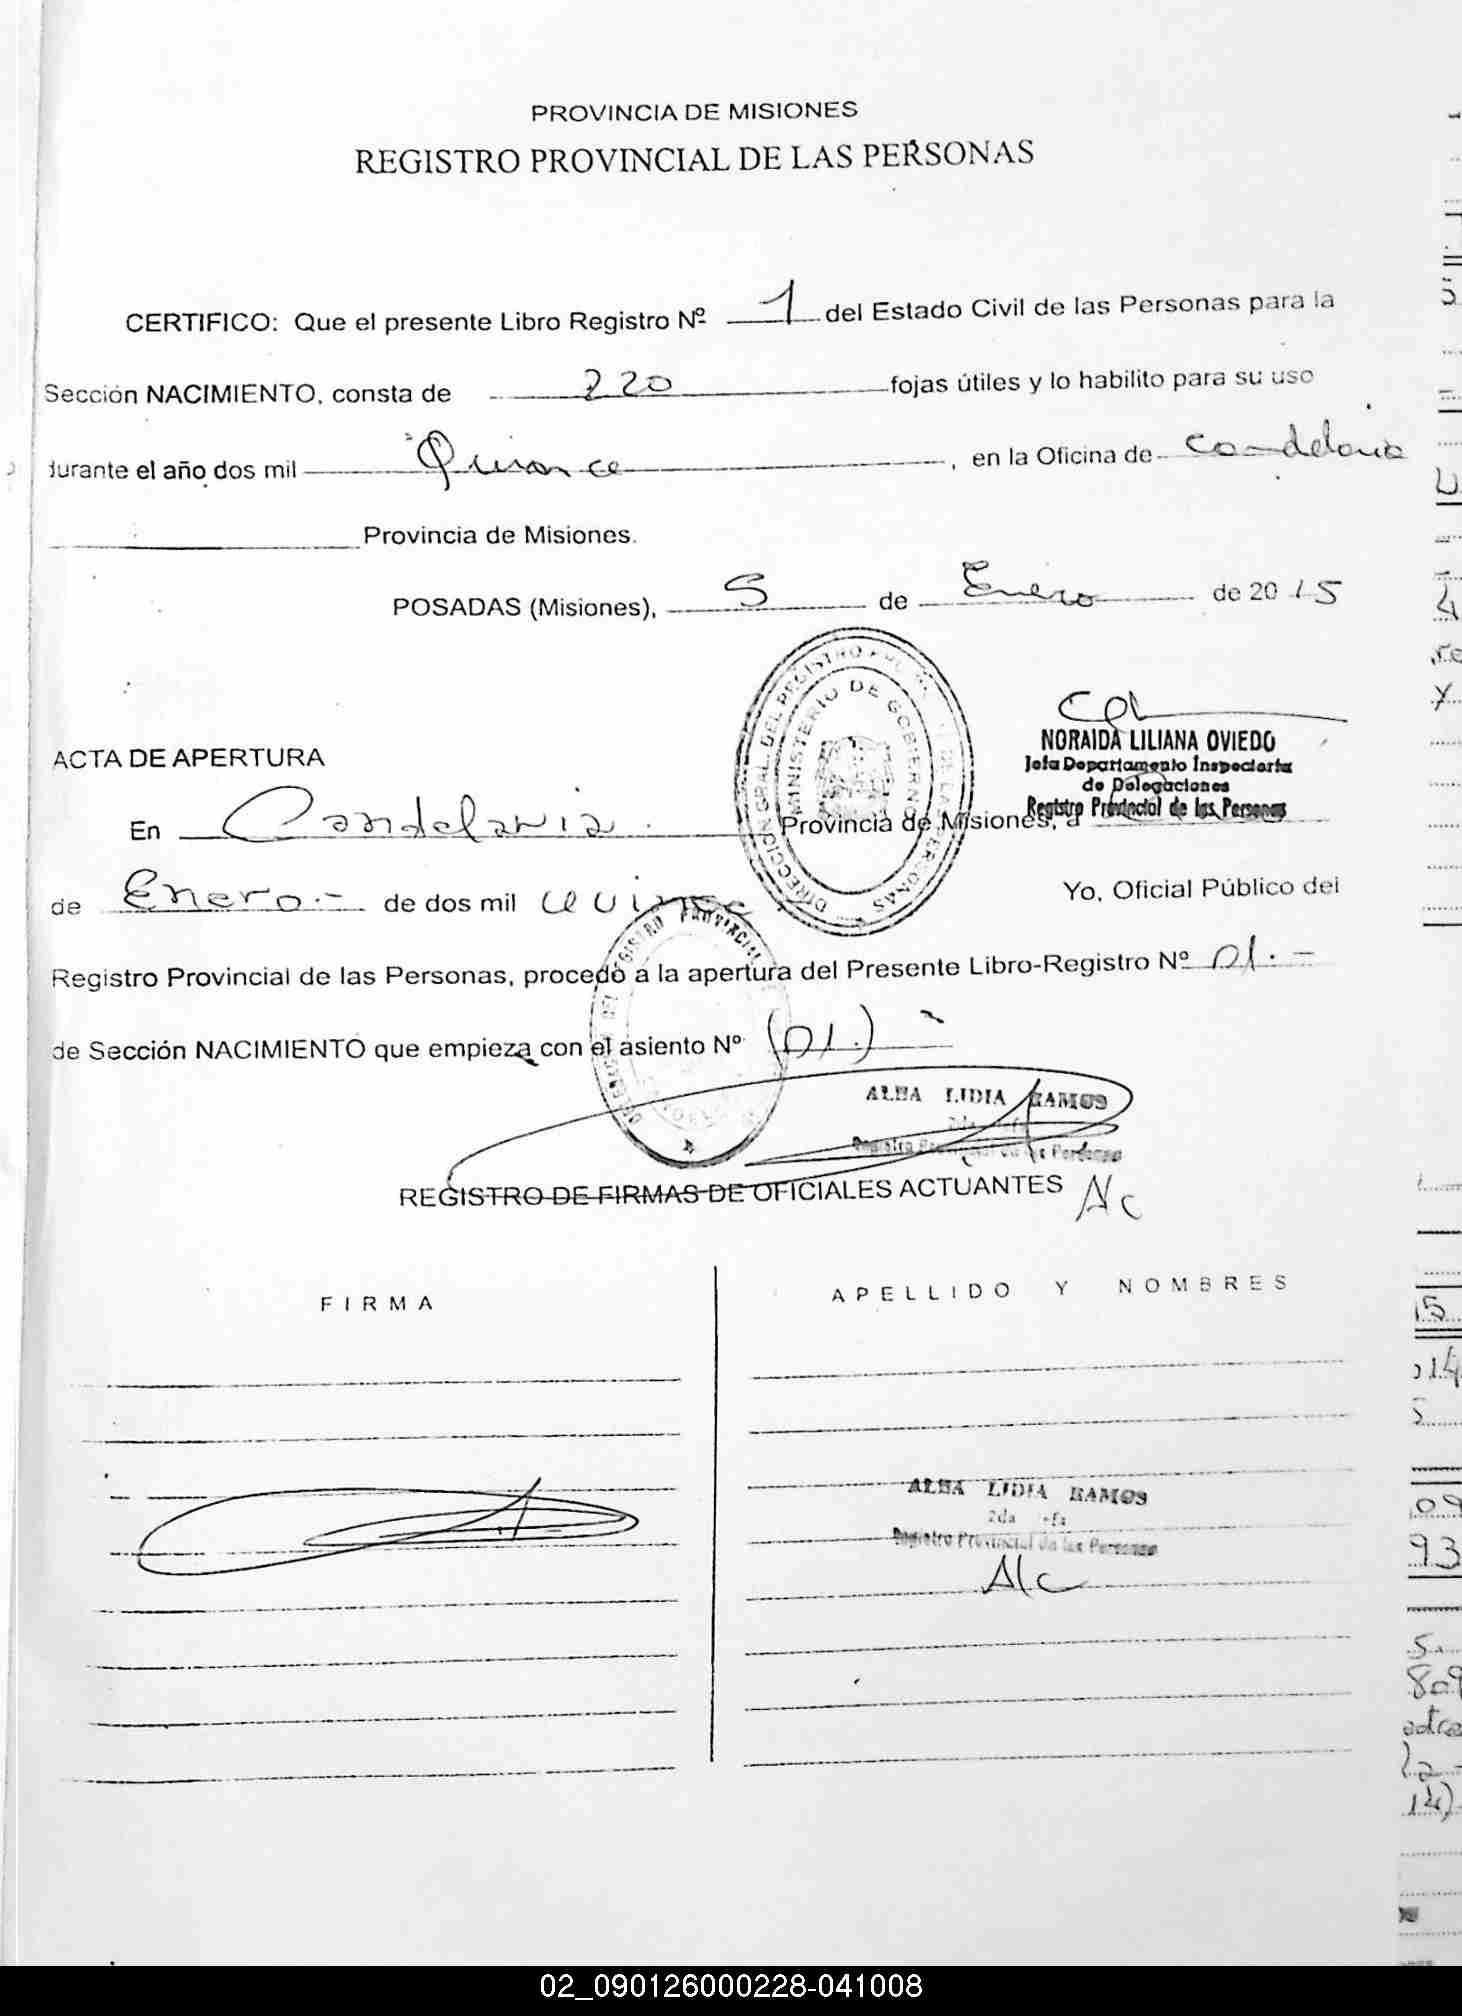 PROVINCIA DE MISIONES
REGISTRO PROVINCIAL DE LAS PERSONAS
CERTIFICO: Que el presente Libro Registro Nº 1 del Estado Civil de las Personas para la
Sección NACIMIENTO, consta de 220 fojas útiles y lo habilito para su uso
durante el año dos mil Quince, en la Oficina de Candelaria
Provincia de Misiones.
POSADAS (Misiones), 5 de Enero de 2015
NORAIDA LILIANA OVIEDO
Jefa Departamento Inspectoria
de Delegaciones
Registro Provincial de las Personas
MINISTERIO DE GOBIERNO
ACTA DE APERTURA
En Candelaria. Provincia de Misiones, a
de Enero.- de dos mil quince Yo, Oficial Público del
Registro Provincial de las Personas, procedo a la apertura del Presente Libro-Registro Nº 01.-
de Sección NACIMIENTO que empieza con el asiento Nº (01.) -
ALBA LIDIA RAMOS
Registro Provincial de las Personas
REGISTRO DE FIRMAS DE OFICIALES ACTUANTES A/c
FIRMA
APELLIDO Y NOMBRES
ALBA LIDIA RAMOS
2da
Registro Provincial de las Personas
A/c
15
014
09
93
809
14)
02_090126000228-041008